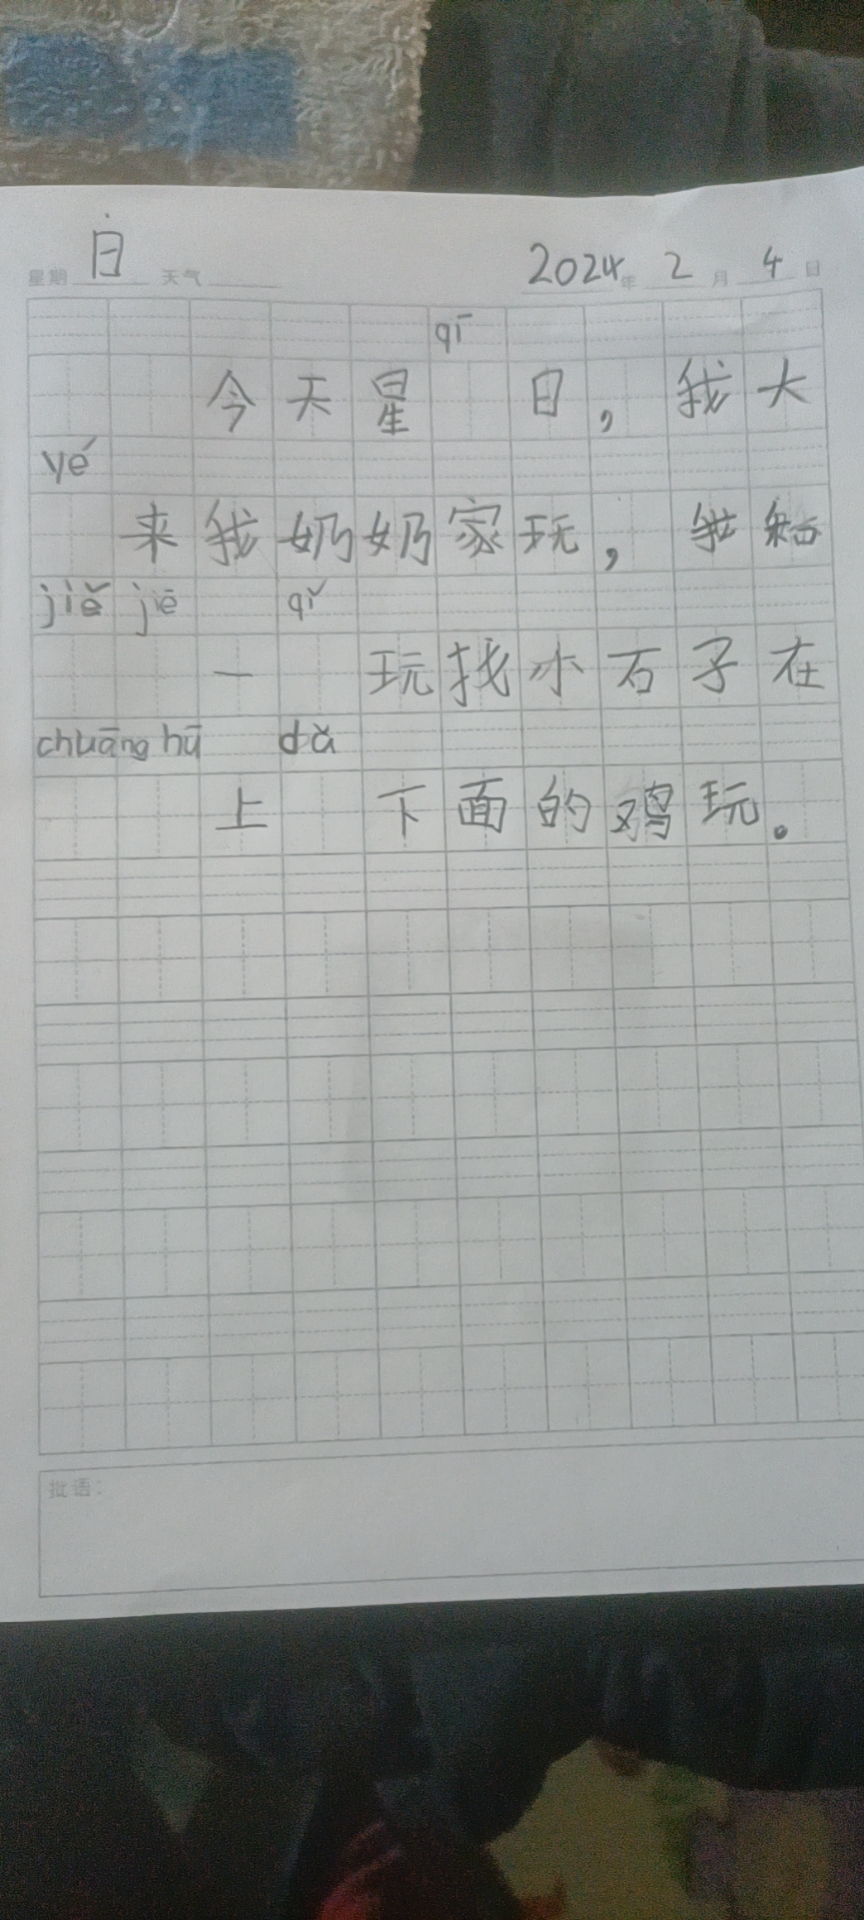 星期 日 天气 2024年 2月 4日
qī
今天星 日，我大
yé
来我奶奶家玩，我和
jiě jiē qǐ
一 玩找小石子在
chuāng hū dǎ
上 下面的鸡玩。
批语：